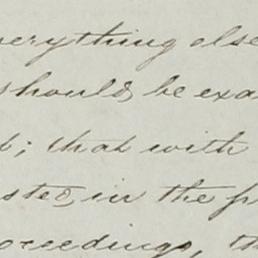 everything else
should be exa
; that with
sted, in the p
oceedings, th